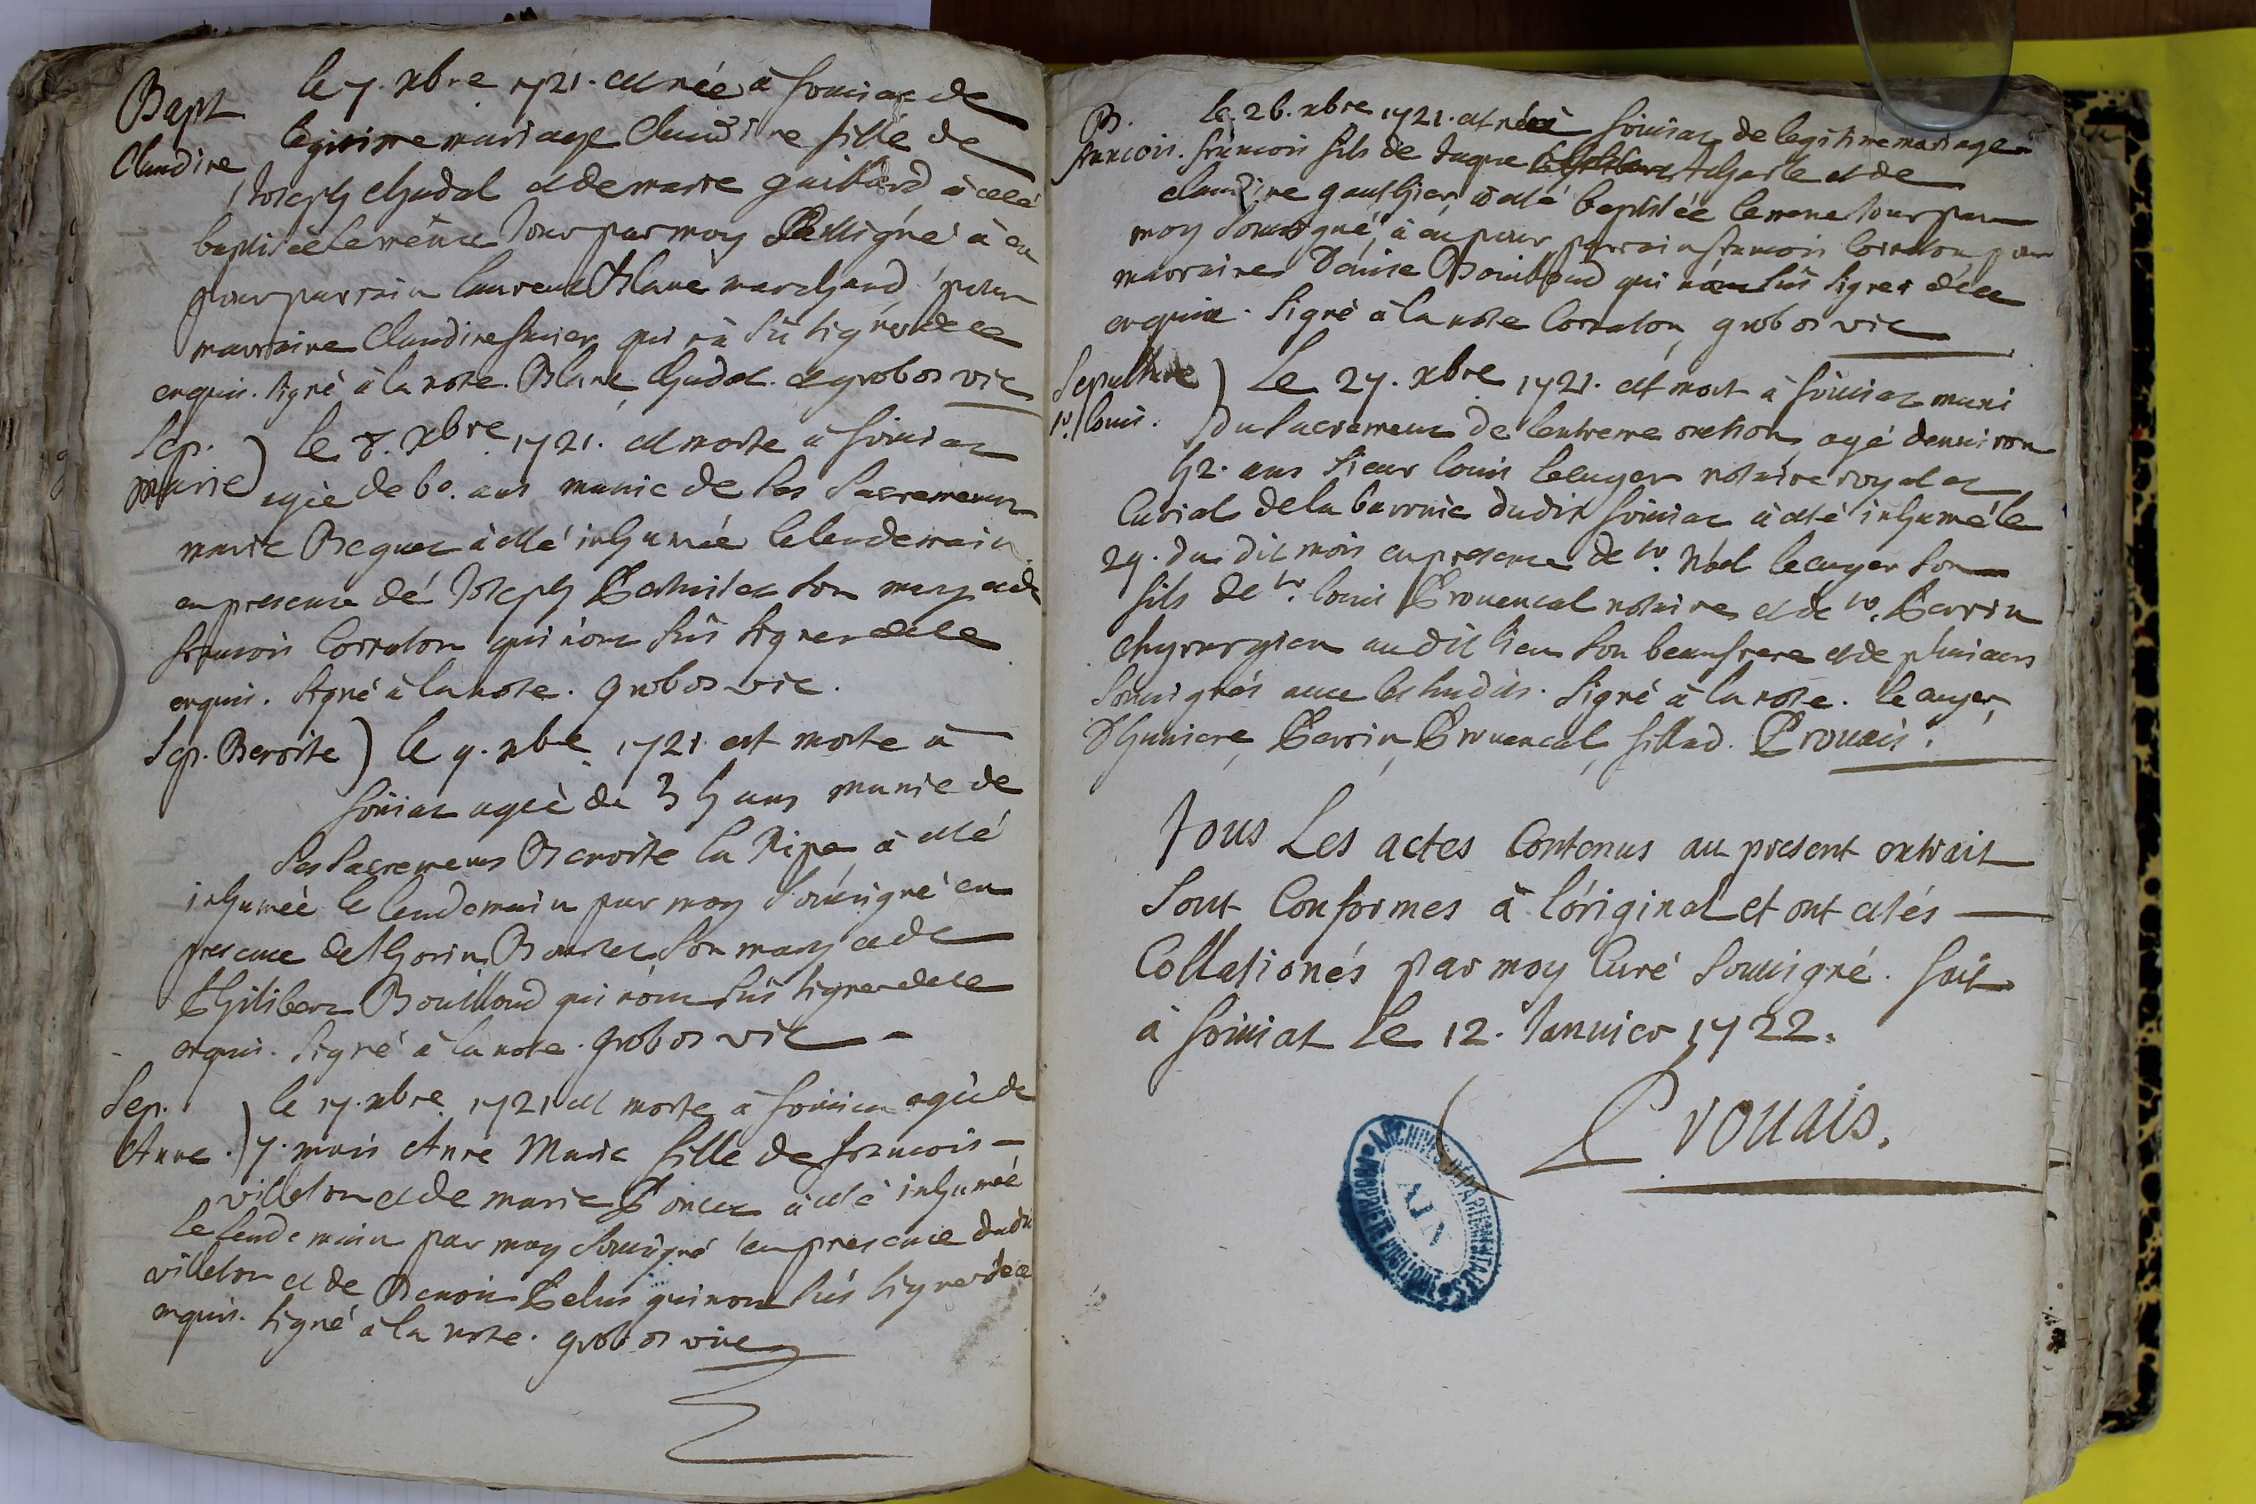 Bapt le 7. xbre 1721. est née à foissiat de
Claudine legitime mariage Claudine fille de
Joseph Chudal et de marie guillard à esté
baptisée le même Jour par moy soussigné à eu
pour parrain laurent Blanc marchand, pour
marraine Claudine qui n'a sû signer de ce
enquis. signé à la note. Blanc, Chudal. et grobos vic
Sep. le 8. xbre 1721. est morte à foissiat
marie agée de 60. ans munie de ses Sacremens
marie Beguet à esté inhumée le lendemain
en presence de Joseph son mary et de
francois Corraton qui n'ont sûs signer de ce
enquis. signé à la note. grobos vic.
Sep. Benoite le 9. xbre 1721 est morte à
foissiat agée de 35 ans munie de
ses sacremens Benoite la Ripe à esté
inhumée le lendemain par moy soussigné en
presence de thorin son mary et de
Philibert Bouilloud qui n'ont sûs signer de ce
enquis. signé à la note. grobos vic
Sep. le 17. xbre 1721 est morte à foissiat agée de
Anne. 7. mois Anne Marie fille de francois
villeton et de marie Poncet à esté inhumée
le lendemain par moy soussigné en presence dudit
villeton et de Benoit qui n'ont sûs signer de ce
enquis. signé à la note. grobos vic
B. le. 26. xbre 1721. est né à foissiat de legitime mariage
francois. francois fils de Jaque et de
claudine gauthier à esté baptisée le meme Jour par
moy soussigné, à eu pour parrain francois Corraton pour
marraine Denise Bouilloud qui n'ont sûs signer de ce
enquis. signé à la note Corraton, grobos vic
Sepulture Le 27. xbre 1721. est mort à foissiat muni
sr. louis. du sacrement de l'extreme onction, agé d'environ
52. ans sieur louis lecuyer notaire royal et
Curial de la baronie dudit foissiat à esté inhumé le
29. du dit mois en presence de sr. Noel lecuyer son
fils de sr. louis Provencal notaire et de sr. Perrin
chyrurgien audit lieu son beaufrere et de plusieurs
soussignés avec les susdits. signé à la note. lecuyer,
Dhuniere, Perrin, Provencal, fillad. Prouais.
Tous Les actes Contenus au present extrait
sont Conformes à l'original et ont estés
Collationés par moy Curé soussigné. fait
à foissiat le 12. Janvier 1722.
Prouais.
ARCHIVES DÉPARTEMENTALES
AIN